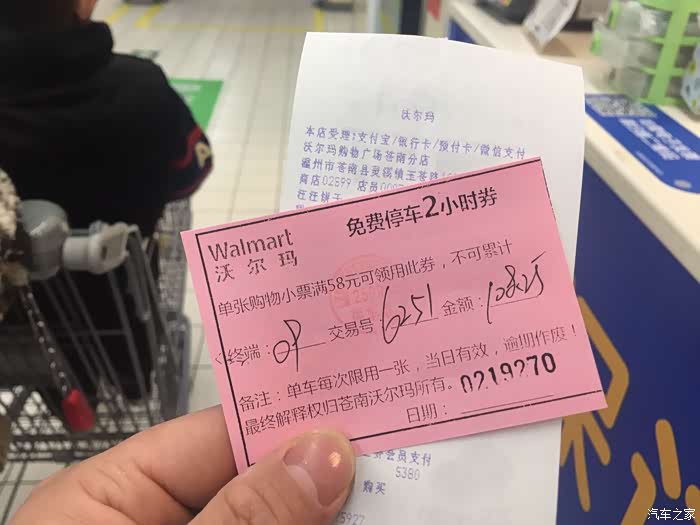 沃尔玛
本店受理:支付宝/银行卡/预付卡/微信支付
沃尔玛购物广场苍南分店
温州市苍南县灵溪镇玉苍路
商店02599 店员000
旺旺饼干
Walmart
沃尔玛
免费停车2小时券
单张购物小票满58元可领用此券，不可累计
终端：09 交易号：6251 金额：108.25
备注：单车每次限用一张，当日有效，逾期作废！
最终解释权归苍南沃尔玛所有。0219270
日期：
会员支付
5380
购买
25927
汽车之家